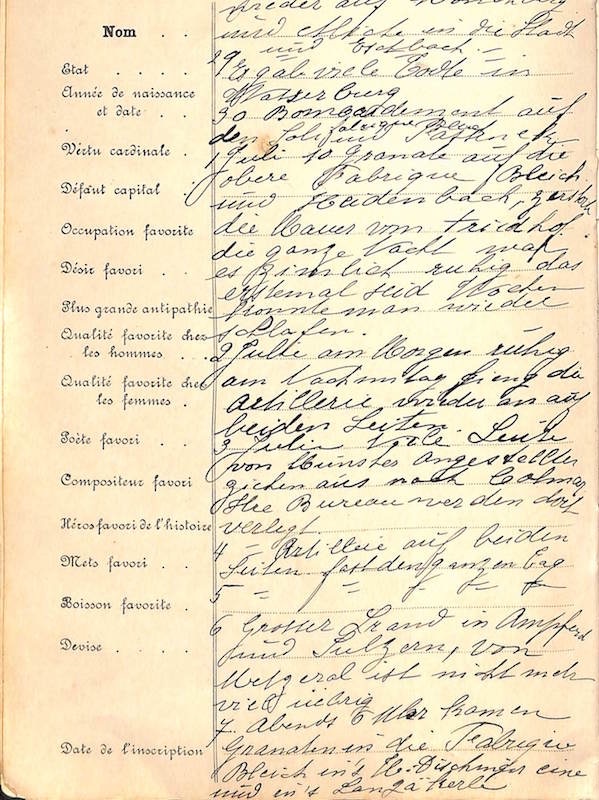 Nom . .
Etat . . . .
Année de naissance
et date . .
Vertu cardinale .
Défaut capital .
Occupation favorite
Désir favori . .
Plus grande antipathie
Qualité favorite chez
les hommes . .
Qualité favorite chez
les femmes .
Poète favori . .
Compositeur favori
Héros favori de l'histoire
Mets favori . .
Boisson favorite .
Devise . . . .
Date de l'inscription
und in die Stadt
und Eschbach. –
29 Es gab viele Todte in
Wasserburg
30 Bomardement auf
den
fabrique
1 Juli 10 Granate auf die
obere Fabrique (Bleich
und Heidenbach, zerstört
die Mauer vom Friedhof.
die ganze Nacht war
es zimlich ruhig das
erstemal seid Wochen
konnte man wieder
schlafen.
2 Julie am Morgen ruhig
am Nachmittag fieng die
Artillerie wieder an auf
beiden Seiten.
3 Julie viele Leute
von Münster angestellte
giehen aus nach Colmar
Ihre Bureau werden dort
verlegt.
4 – Artillerie auf beiden
Seiten fast den ganzen Tag
5 " " " " "
6 Grosser Brand in Ampfersb
und Sulzern, von
Metzeral ist nicht mehr
viel uebrig
7. Abends 6 Uhr kamen
Granaten in die Fabrique
Bleich in's H. Dischinger eine
und in's